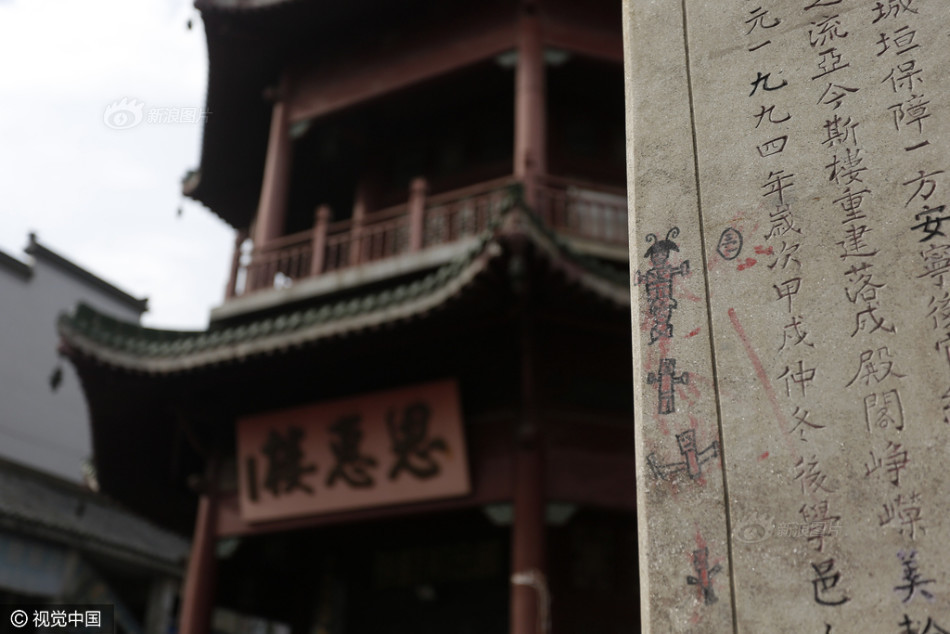 城垣保障一方安寧後
之流亞今斯樓重建落成殿閣崢嶸美
元一九九四年歲次甲戌仲冬後學邑人
恩惠樓
新浪图片
© 视觉中国